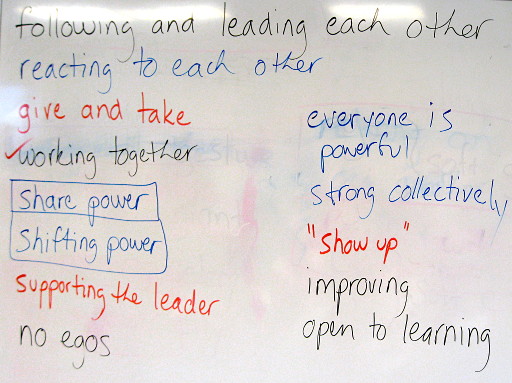 following and leading each other
reacting to each other
give and take
working together
share power
shifting power
supporting the leader
no egos
everyone is
powerful
strong collectively
"show up"
improving
open to learning